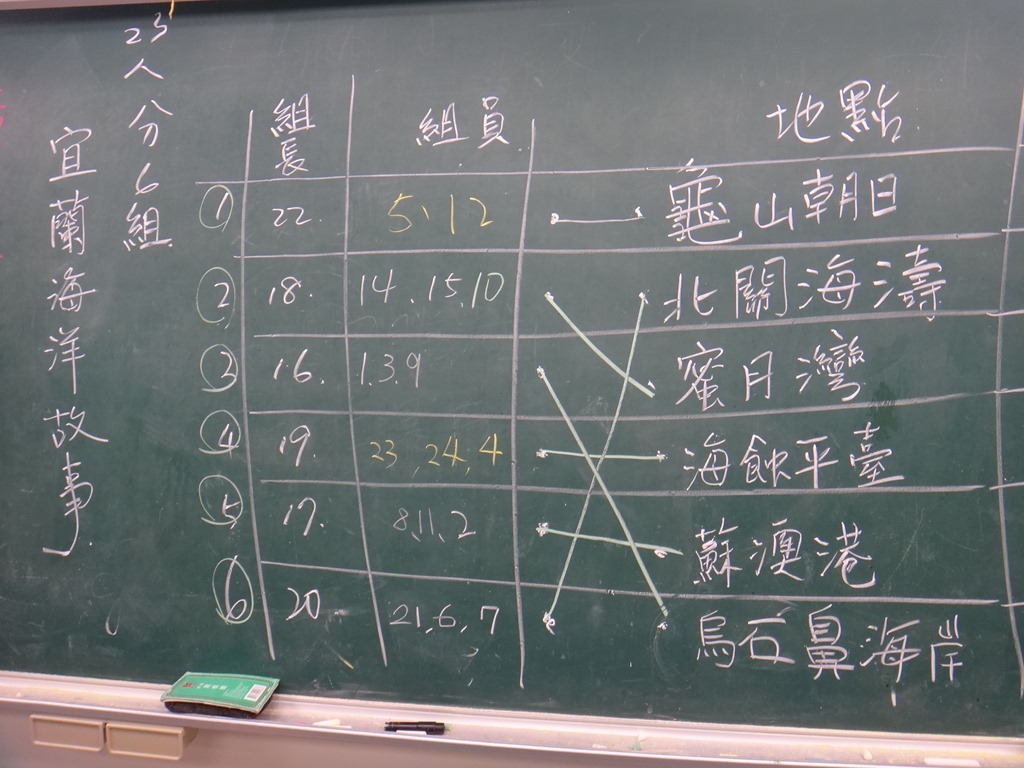 23人分6組
宜蘭海洋故事.
組長 組員. 地點.
① 22. 5、12 龜山朝日
② 18. 14、15,10 北關海濤
③ 16. 1.3.9 蜜月灣
④ 19. 23,24,4 海蝕平臺
⑤ 17. 8,11,2 蘇澳港
⑥ 20 21,6,7 烏石鼻海岸